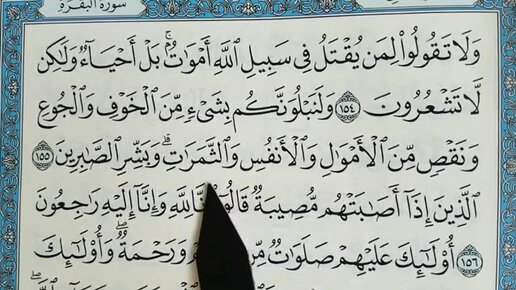 سورة البقرة
وَلَا تَقُولُوا۟ لِمَن يُقْتَلُ فِى سَبِيلِ ٱللَّهِ أَمْوَٰتٌۢ ۚ بَلْ أَحْيَآءٌ وَلَـٰكِن
لَّا تَشْعُرُونَ ١٥٤ وَلَنَبْلُوَنَّكُم بِشَىْءٍ مِّنَ ٱلْخَوْفِ وَٱلْجُوعِ
وَنَقْصٍ مِّنَ ٱلْأَمْوَٰلِ وَٱلْأَنفُسِ وَٱلثَّمَرَٰتِ ۗ وَبَشِّرِ ٱلصَّـٰبِرِينَ ١٥٥
ٱلَّذِينَ إِذَآ أَصَـٰبَتْهُم مُّصِيبَةٌ قَالُوٓا۟ إِنَّا لِلَّهِ وَإِنَّآ إِلَيْهِ رَٰجِعُونَ
١٥٦ أُو۟لَـٰٓئِكَ عَلَيْهِمْ صَلَوَٰتٌ مِّن وَرَحْمَةٌ ۖ وَأُو۟لَـٰٓئِكَ